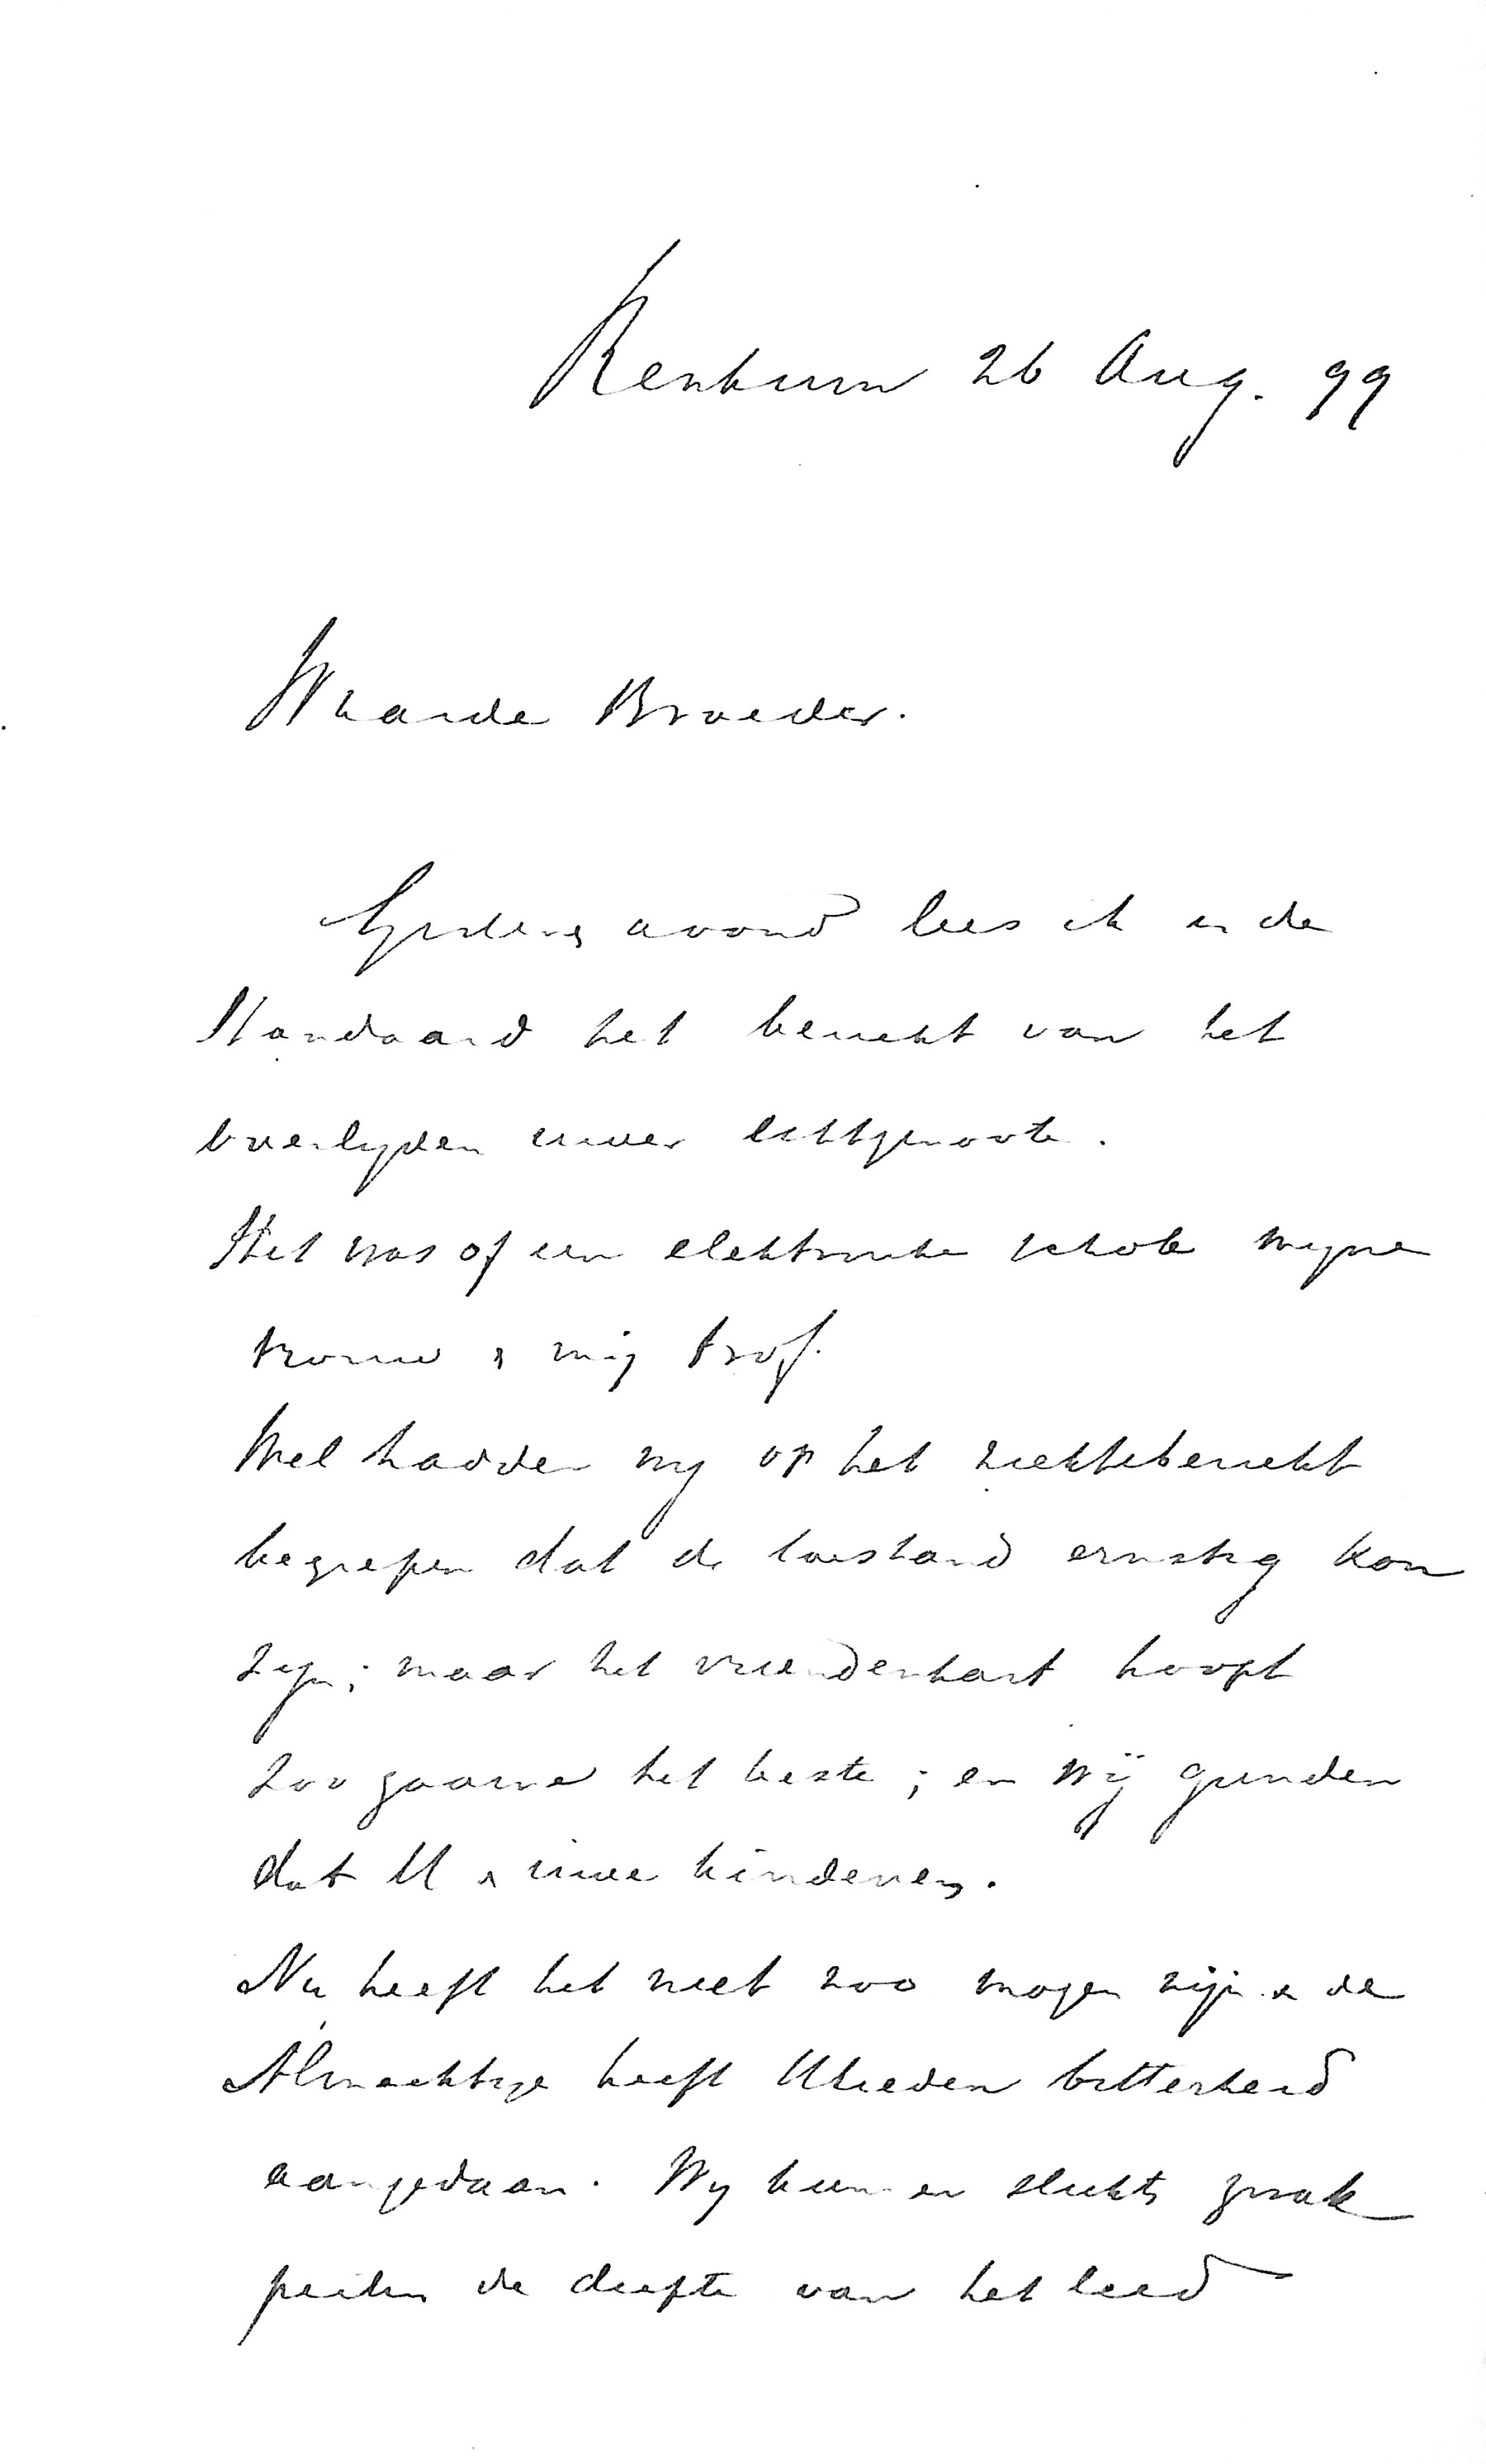 Renkum 26 Aug. 99
Waarde Broeder.
Gisteren avond lees ik in de
Standaard het bericht van het
overlyden uwer echtgenoote.
Het was of een elektrische schok myne
vrouw & mij trof.
Wel hadden wy op het ziektebericht
begrepen dat de toestand ernstig kon
zyn; maar het vriendenhart hoopt
zoo gaarne het beste; en wij gunden
dat U & uwe kinderen.
Nu heeft het niet zoo mogen zijn & de
Almachtige heeft Ulieden bitterheid
aangedaan. Wy kunnen slechts zwak
peilen de diepte van het leed